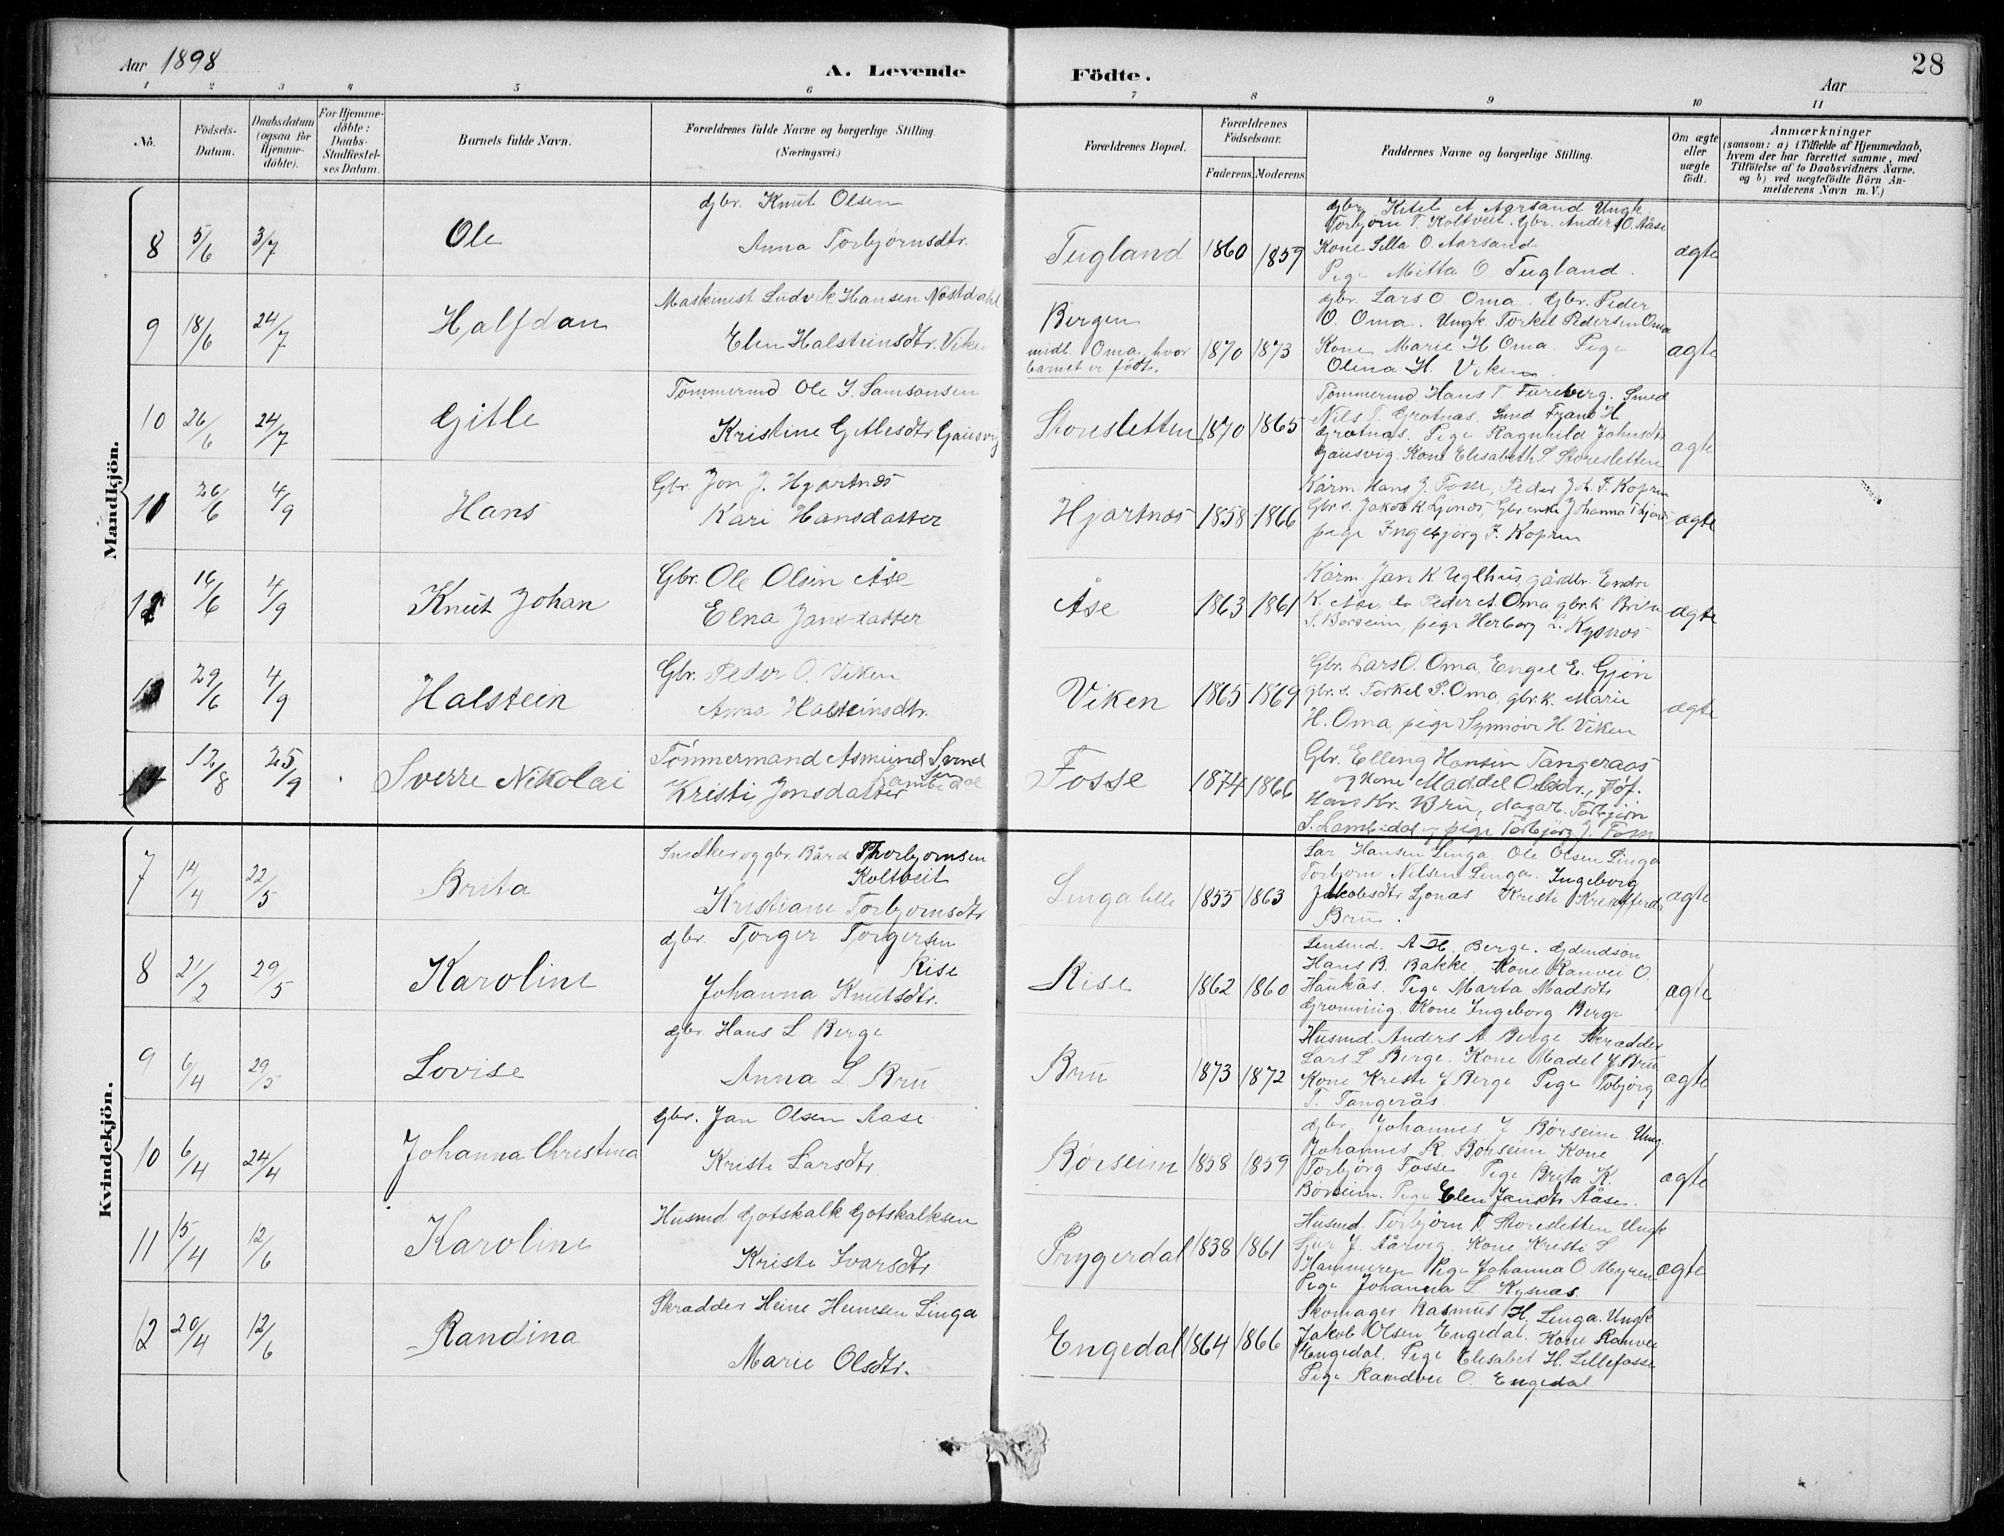 Aar 1898
A. Levende
Födte.
Aar
28
1 2 3 4 5 6 7 8 9 10 11
No.
Födsels-Datum.
Daabsdatum (ogsaa for Hjemmedöbte).
For Hjemmedöbte: Daabs-Stadfæstelses Datum.
Barnets fulde Navn.
Forældrenes fulde Navne og borgerlige Stilling. (Næringsvei.)
Forældrenes Bopæl.
Forældrenes Födselsaar.
Faderens. Moderens.
Faddernes Navne og borgerlige Stilling.
Om ægte eller uægte födt.
Anmærkninger
(saasom: a) i Tilfælde af Hjemmedaab, hvem der har forrettet samme, med Tilföielse af to Daabsvidners Navne. og b) ved uægtefödte Börn Anmelderens Navn m. V.)
Mandkjön.
8 5/6 3/7 Ole
gbr. Knut Olsen
Anna Torbjørnsdtr.
Tugland 1860 1859
gbr. Ketel A Aarsand Ungk.
Torbjørn T. Koltveit. Gbr. Anders O. Aase
Kone Silla O. Aarsand
Pige Mitta O. Tugland.
ægte
9 18/6 24/7 Halfdan
Maskinist Ludvik Hansen Nostdahl
Elen Halsteinsdtr. Viken
Bergen
midl. Oma, hvor
barnet er født.
1870 1873
gbr. Lars O. Oma. Gbr. Peder
O. Oma. Ungk. Torkel Pedersen Oma
Kone Marie H Oma. Pige
Olena H. Viken
ægte
10 26/6 24/7 Gitle
Tømmermd Ole J. Samsonsen
Kristine Gitlesdtr Gausvig
Storesletten 1870 1865
Tømmermd Hans T Fureberg. Smed
Nils T. Grotnæs. Smd Frans H
Grotnæs. Pige Ragnhild Johnsdtr
Gausvig. Kone Elisabeth S Storesletten
ægte
11 26/6 4/9 Hans
Gbr. Jon J. Hjartnæs
Kari Hansdatter
Hjartnæs 1858 1866
Kårm. Hans J. Fosse, Peder J.
Gbr.s. Jakob K. Ljones, Gbr.enke Johanna
pige Ingebjørg J. Kopren
ægte
12 16/6 4/9 Knut Johan
Gbr. Ole Olsen Åse
Elna Jansdatter
Åse 1863 1861
Kårm. Jan K. Uglhus, gårdbr. Endre
K. Åse, do Peder A. Oma, gbr.k Brita
S. Børseim, pige Herborg L. Kysnæs
ægte
13 29/6 4/9 Halstein
Gbr. Peder O. Viken
Anna Halsteinsdtr.
Viken 1865 1869
Gbr. Lars O. Oma, Engel E. Gjøn
gbr.s. Torkel P. Oma, gbr.k. Marie
H. Oma, pige Synnøve H. Viken
ægte
14 12/8 25/9 Sverre Nikolai
Tømmermand Asmund Svendsen
Kristi Jonsdatter
Fosse 1874 1866
Gbr. Elling Hansen Tangeraas
og Kone Maddel Olsdr.,
Hans Kr. Bru, dagar. Torbjørn
S. Lambedal og pige Torbjørg J. Fosse
Kvindekjön.
7 14/4 22/5 Brita
Snedker og gbr. Bård Thorbjørnsen
Koltveit
Kristiane Torbjørnsdtr
Linga lille 1855 1863
Lar Hansen Linga Ole Olsen Linga
Torbjørn Nilsen Linga. Ingeborg
Jakobsdtr Ljonæs Kristi
Bru.
ægte
8 21/2 29/5 Karoline
gbr. Torger Torgersen
Rise
Johanna Knutsdtr.
Rise 1862 1860
Lensmd. A H. Berge.
Hans B. Bakke, Kone Ranvei O.
Haukås. Pige Marta Madsdtr
Gronning. Kone Ingeborg Berge
ægte
9 6/4 29/5 Lovise
gbr. Hans L Berge
Anna L Bru
Bru 1873 1872
Husmd. Anders A Berge Skrædder
Lars L Berge. Kone Madel J Bru
Kone Kristi J Berge Pige Tobjörg
T. Tangerås.
ægte
10 6/4 24/4 Johanna Christina
gbr. Jan Olsen Aase
Kristi Larsdtr.
Børseim 1858 1859
gbr. Johannes J Børseim. Ung.
Johannes R. Børseim Kone
Torbjørg Fosse Pige Brita K.
Børseim. Pige Elen Jansdtr Aåse.
ægte
11 15/4 12/6 Karoline
Husmd Gotskalk Gotskalksen
Kristi Ivarsdtr
Prygerdal 1838 1861
Husmd. Torbjörn T. Storesletten Ungk
Sjur J. Aårvig. Kone Kristi S
Hammeren Pige Johanna O. Myren
Pige Johanna L Kysnæs
ægte
12 20/4 12/6 Randina
Skrædder Heine Heinesen Linga
Marie Olsdtr.
Engedal 1864 1866
Skomager Rasmus H. Linga. Ungk
Jakob Olsen Engedal. Kone Ranvei
Engedal. Pige Elisabet H. Lillefosse
Pige Randvei O. Engedal